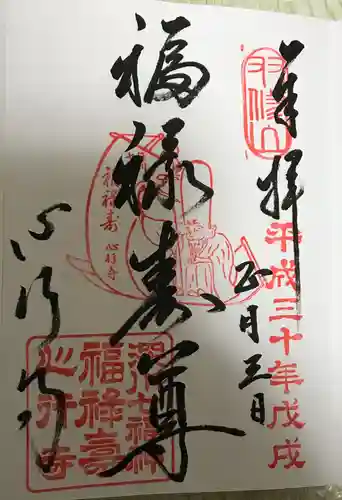 奉拝
平成三十年戊戌
正月三日
福禄寿尊
心行寺
福禄寿
心行寺
深川七福神
福禄壽
心行寺